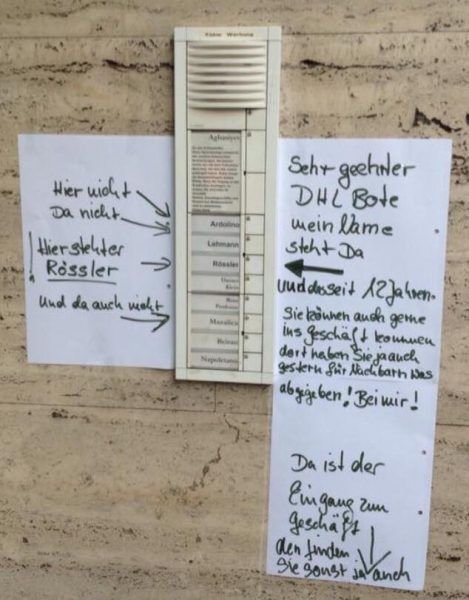 Keine Werbung
Aghasiyev
Ardolino
Lehmann
Rössler
Maralica
Beirau
Napoletano
Hier nicht
Da nicht
Hier steht er
! Rössler
und da auch nicht
Sehr geehrter
DHL Bote
mein Name
steht Da
und das seit 12 Jahren.
Sie können auch gerne
ins Geschäft kommen
dort haben Sie ja auch
gestern für Nachbarn was
abgegeben! Bei mir!
Da ist der
Eingang zum
Geschäft
den finden
Sie sonst ja auch